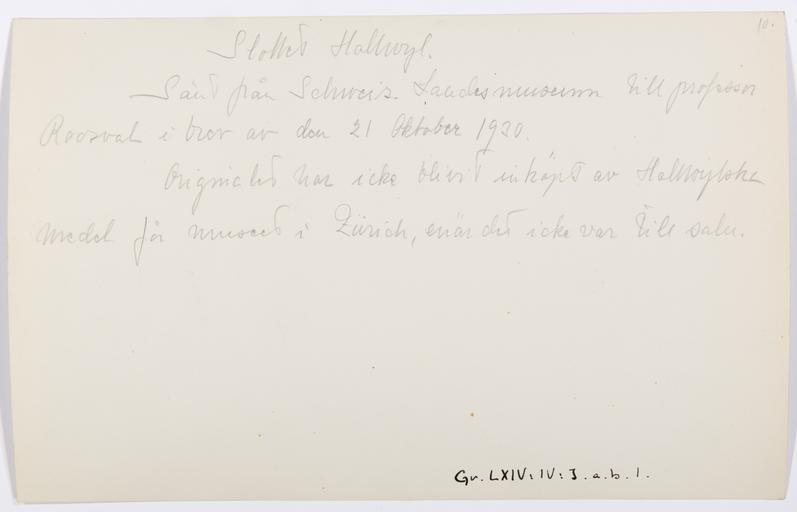 10.
Slottet Hallwyl.
Sänt från Schweiz. Landesmuseum till professor
Roosval i brev av den 21 Oktober 1920.
Originalet har icke blivit inköpt av Hallwylska
medel för museet i Zürich, enär det icke var till salu.
Gr. LXIV: IV: J. a. b. 1.